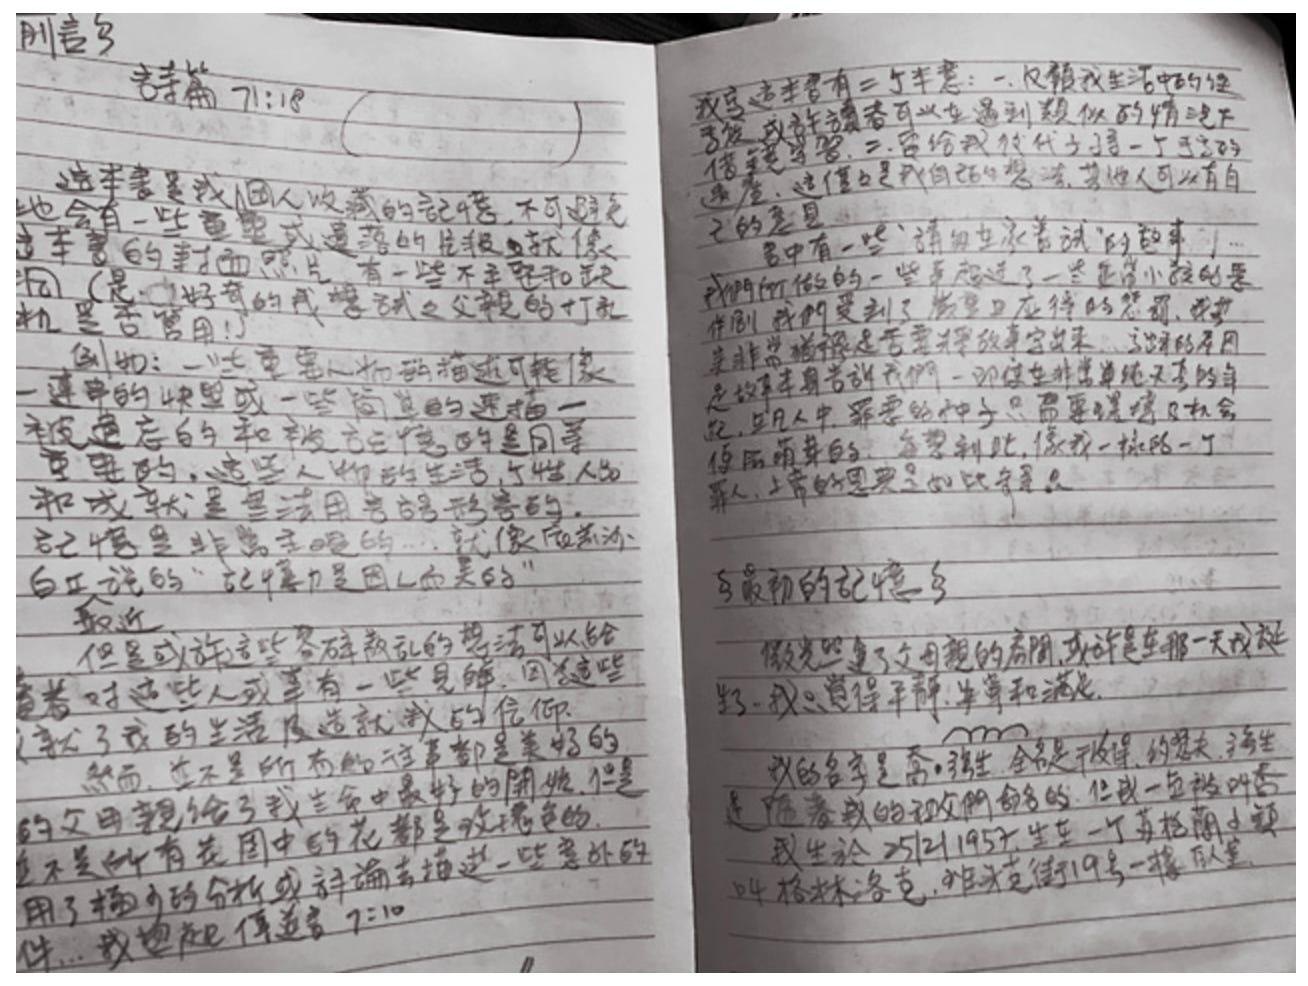 前言ξ
詩篇 71:18
這本書是我個人收藏的記憶,不可避免
地會有一些重疊或遺落的片段。就像
這本書的封面照片,有一些不平整和缺
洞(是 好奇的我想試試父親的打孔
機是否管用!)
例如:一些重要人物的描述可能像
一連串的快照或一些簡單的素描一
被遺忘的和被記憶的是同等
重要的。這些人物的生活,個性人品
和成就是無法用言語形容的。
記憶是非常主觀的...就像
最近
說的“記憶力是因人而異的”
但是或許這些零碎散亂的想法可以給
讀者對這些人或事有一些見解,因為這些
就了我的生活及造就我的信仰.
然而,並不是所有的往事都是美好的,
的父母親給了我生命中最好的開始,但是
並不是所有花園中的花都是玫瑰色的.
用了 的分析或評論去描述一些意外的
件...我想起 傳道書 7:10
我寫這本書有二個本意:一.只願我生活中的經
或許讀者可以在遇到類似的情況下
借 學習.二.留給我後代子孫一個
這僅只是我自己的想法,其他人可以有自
己的意見
書中有一些“請勿在家嘗試”的故事!...
我們所做的一些事超過了一些正常小孩的惡
作劇,我們受到了 應得的懲罰,
非常猶豫是否要把故事寫出來,寫出來的原因
是故事本身告訴我們一即使在非常單純天真的年
紀,在凡人中,罪惡的種子只需要環境及機會
便 萌芽的.每想到此,像我一樣的一個
罪人,上帝的恩典是如此奇異。
ξ最初的記憶ξ
微光照進了父母親的房間,或許是在那一天我誕
生了.我只覺得平靜.安寧和滿足.
我的名字是喬.強生,全名是 .約瑟夫.強生
是隨著我的祖父們命名的.但我一直被叫喬
我生於 25/2/1957,生在一個蘇格蘭小鎮
叫格林洛克. 克街19號一樓